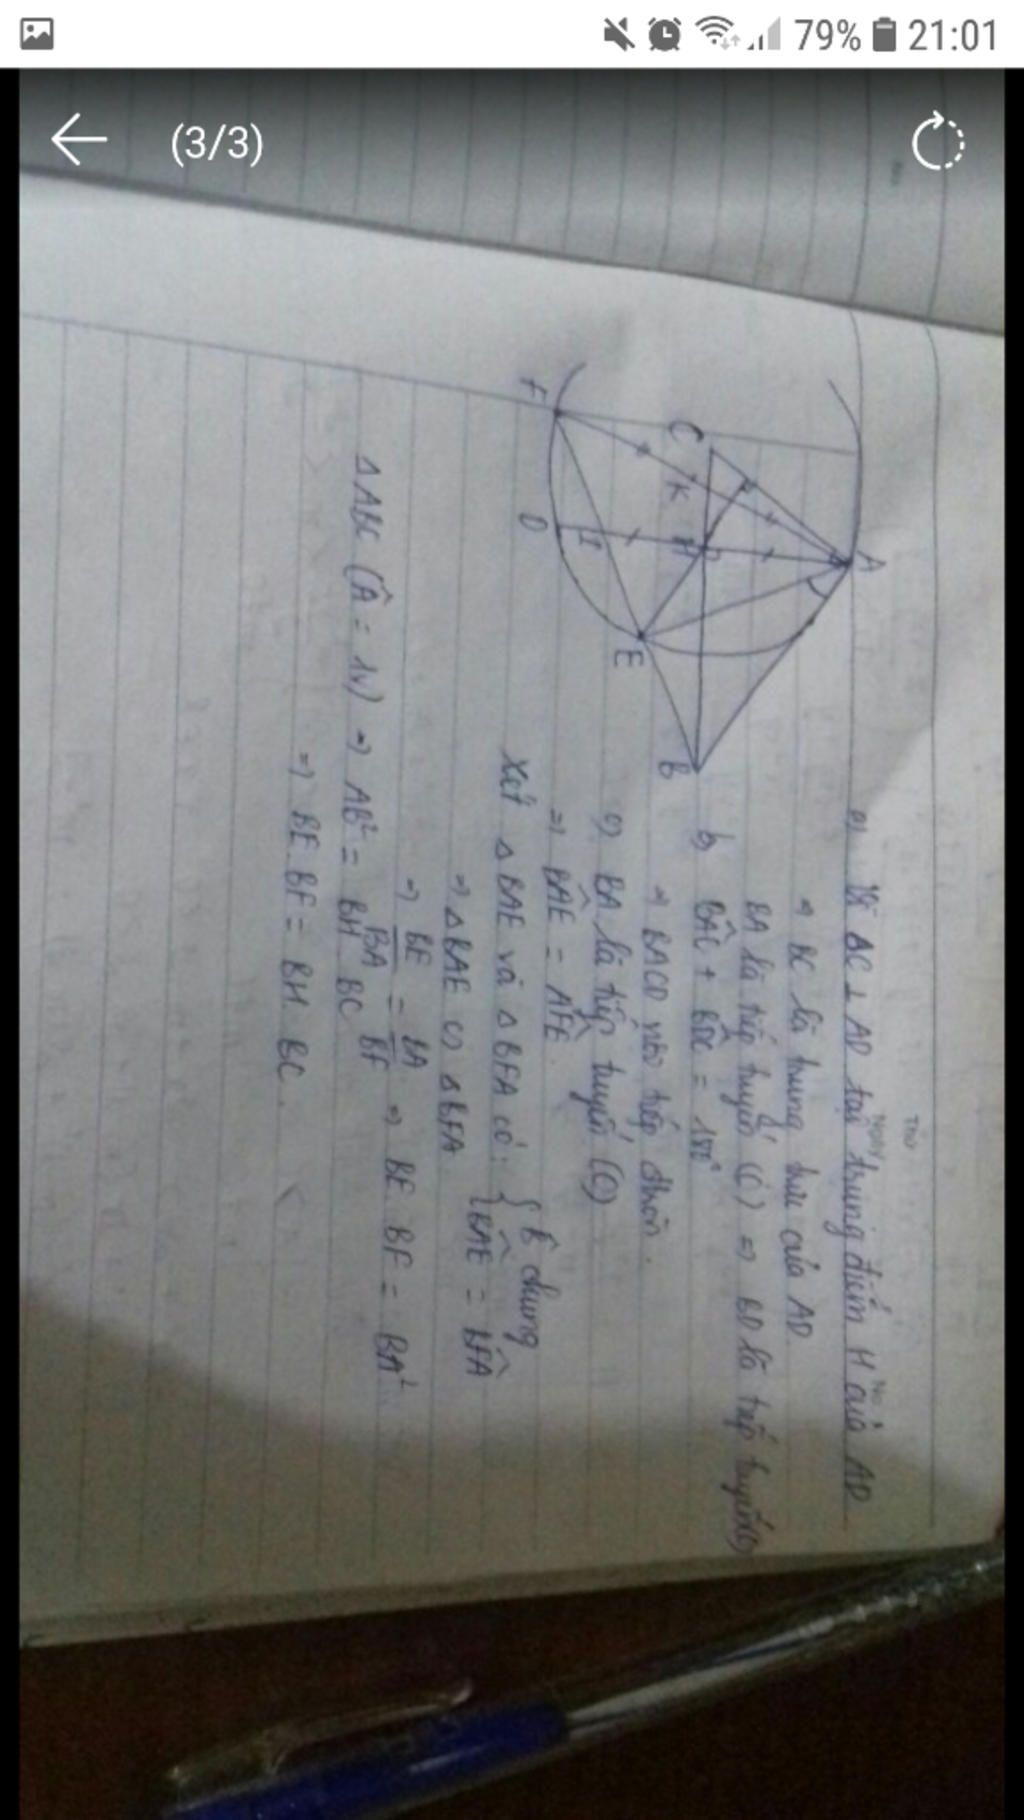 79% 21:01
(3/3)
Thứ Ngày No
a) Vì BC ⊥ AD tại trung điểm H của AD
⇒ BC là trung trực của AD
BA là tiếp tuyến (C) ⇒ BD là tiếp tuyến (C)
b) BÂC + BD̂C = 180°
⇒ BACD nội tiếp đtròn.
c) BA là tiếp tuyến (C)
⇒ BÂE = AF̂E.
Xét △BAE và △BFA có: { B̂ chung
{ BÂE = BF̂A
⇒ △BAE ∽ △BFA
⇒ BE/BA = BA/BF ⇒ BE.BF = BA²
△ABC (Â = 1v) ⇒ AB² = BH.BC
⇒ BE.BF = BH.BC.
A
B
C
D
E
F
H
I
K